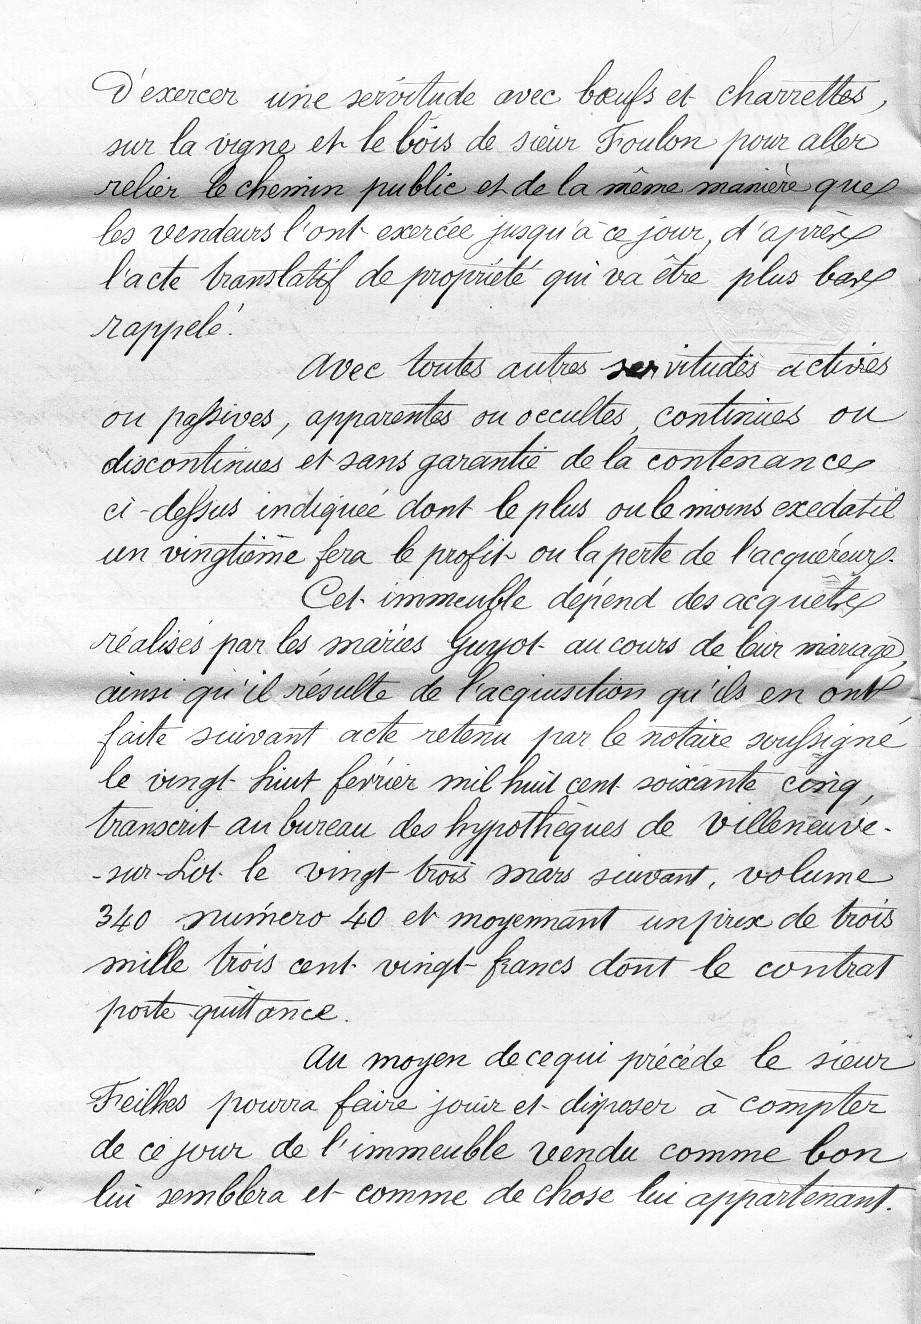 D'exercer une servitude avec bœufs et charrettes,
sur la vigne et le bois de sieur Foulon pour aller
relier le chemin public et de la même manière que
les vendeurs l'ont exercée jusqu'à ce jour, d'après
l'acte translatif de propriété qui va être plus bas
rappelé.
Avec toutes autres servitudes actives
ou passives, apparentes ou occultes, continues ou
discontinues et sans garantie de la contenance
ci-dessus indiquée dont le plus ou le moins exedatil
un vingtième fera le profit ou la perte de l'acquéreur.
Cet immeuble dépend des acquêts
réalisés par les mariés Guyot au cours de leur mariage,
ainsi qu'il résulte de l'acquisition qu'ils en ont
faite suivant acte retenu par le notaire soussigné
le vingt huit février mil huit cent soixante cinq,
transcrit au bureau des hypothèques de Villeneuve-
-sur-Lot le vingt trois mars suivant, volume
340 numéro 40 et moyennant un prix de trois
mille trois cent vingt francs dont le contrat
porte quittance.
Au moyen de ce qui précéde le sieur
Feilhes pourra faire jouir et disposer à compter
de ce jour de l'immeuble vendu comme bon
lui semblera et comme de chose lui appartenant.